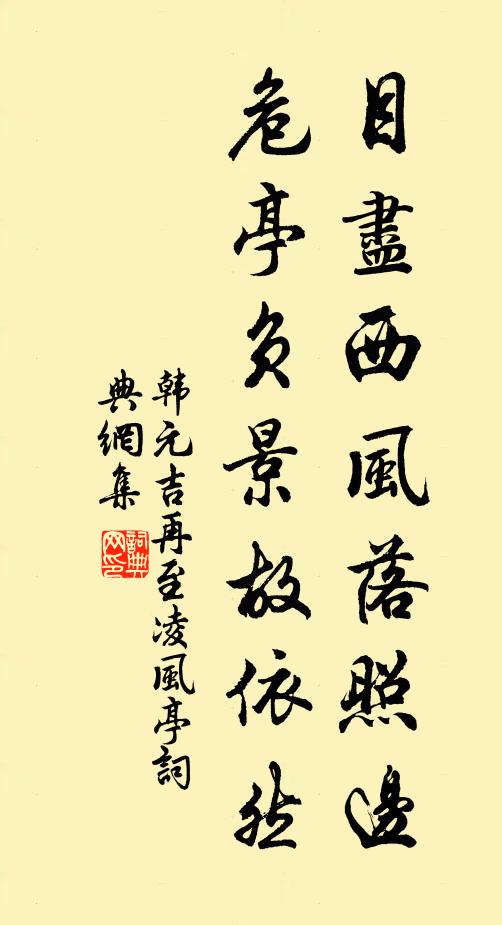 目盡西風落照邊
危亭負景故依然
韩元吉再至凌風亭詞
典網集
詞典网印